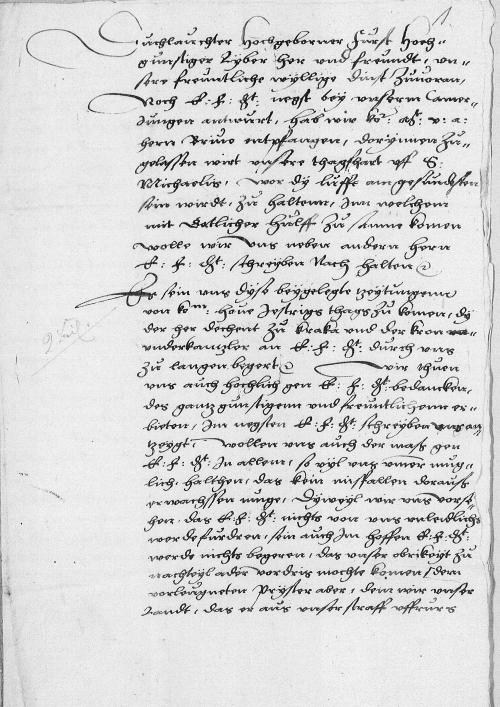 Durchlauchter Hochgeborner Furst Hoch-
gunstiger Lyber her vnd freundt, vn-
sere freuntliche wyllige dinst Zuuoran,
Noch E: f: Gt: negst bey vnserm Camer-
Jungen antwurt, hab wir ko: Mt: v: a:
hern Briue entpfangen, dorynnen Zu-
gelossen wirt vnsere thagfhart vff S:
Michaelis, wor dy lufft am gesundsten
sein wirdt, Zu haltenn, Inn welchem
mit Gotlicher hulff Zusamne komen
wolle wir vns neben andern hern
E: f: Gt: schreyben Nach halten
Es sein vns dyse beygelegte tzeytungenn
von kom: houe Jestrigs thags Zu komen, dy
der her dechent Zu Kraka vnd der kron
vnderkanzler an E: f: Gt: durch vns
Zu langen begert wir thuen
vns auch hochlich gen E: f: Gt: bedancken,
des gantz gunstigenn vnd freuntlichenn er-
bieten, Im negsten E: f: Gt: schreyben vns an
tzeygt wollen vns auch der mass gen
E: f: Gt: In allem, so vyl vns ymer mug-
lich halthen, das kein misfallen dorauss
erwachssen muge, Dyweyl wir vns vorse-
hen das E: f: Gt: nichts von vns vnleidlichs
werde furdren, sein auch Im hoffen E: f: Gt:
werde nichts begeren, das vnser obrikeyt Zu
nachteyl ader vordris mochte komen dem
vorlougneten Pryster aber, dem wir vnser
Landt, das er aus vnser straff vffrurs